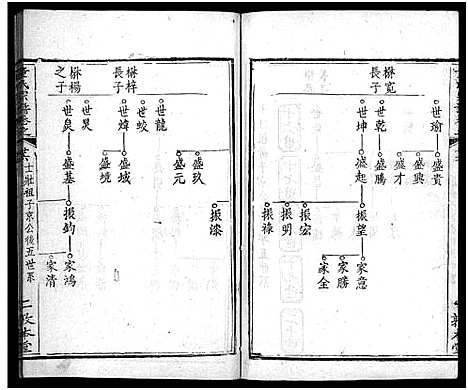 楙寬
長子
世瑜
世乾
世坤
盛貴
盛興
盛才
盛騰
盛起
振望
振宏
振明
振祿
家意
家勝
家全
敦本堂
楙梓
長子
楙楊
之子
世龍
世蛟
世煒
世昊
世炅
盛玖
盛元
盛域
盛境
盛基
振漆
振鈞
家鴻
家清
士壯祖子京公後五世系
二敦本堂